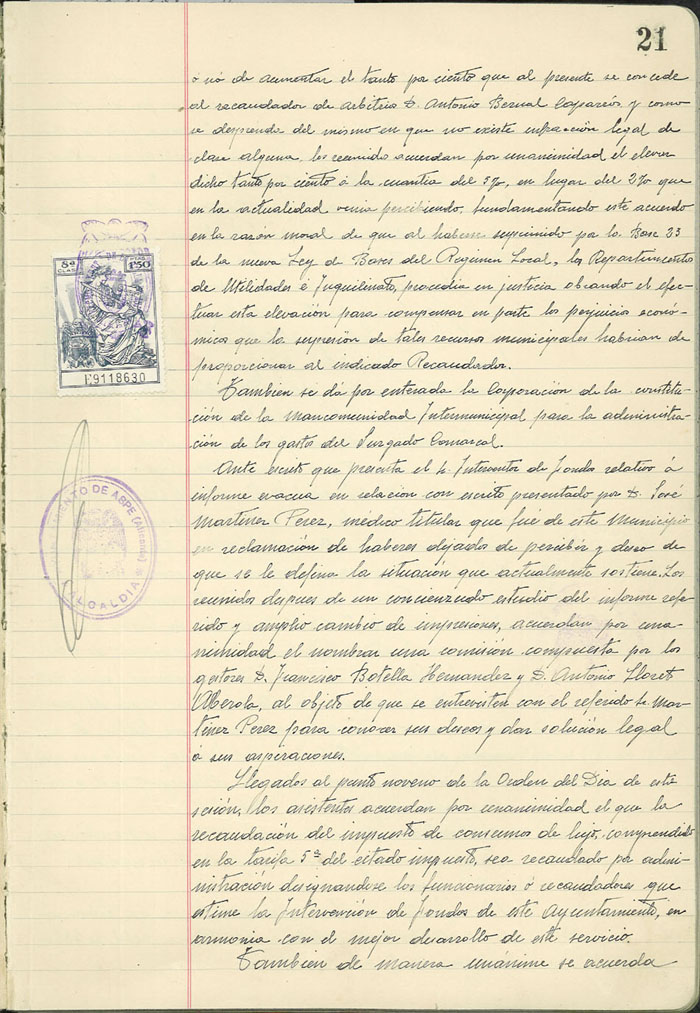 21
ó nó de aumentar el tanto por ciento que al presente se concede
al recaudador de arbitrios D. Antonio Bernal Caparrós y como
se desprende del mismo en que no existe infracción legal de
clase alguna, los reunidos acuerdan por unanimidad el elevar
dicho tanto por ciento á la cuantia del 5%, en lugar del 2% que
en la actualidad venia percibiendo, fundamentando este acuerdo
en la razón moral de que al haberse suprimido por la Base 23
de la nueva Ley de Bases del Regimen Local, los Repartimientos
de Utilidades é Inquilinato, procedia en justicia obrando el efec-
tuar esta elevación para compensar en parte los perjuicios econó-
micos que la supresión de tales recursos municipales habrian de
proporcionar al indicado Recaudador.
Tambien se dá por enterada la Corporación de la constitu-
ción de la Mancomunidad Intermunicipal para la administra-
ción de los gastos del Juzgado Comarcal.
Ante escrito que presenta el Sr. Interventor de Fondos relativo á
informe evacua en relación con escrito presentado por D. José
Martinez Perez, médico titular que fué de este Municipio
en reclamación de haberes dejados de percibir y deseo de
que se le defina la situación que actualmente sostiene. Los
reunidos despues de un concienzudo estudio del informe refe-
rido y amplio cambio de impresiones, acuerdan por una-
nimidad el nombrar una comisión compuesta por los
gestores D. Francisco Botella Hernandez y D. Antonio Lloret
Alberola, al objeto de que se entrevisten con el referido Sr. Mar-
tinez Perez para conocer sus deseos y dar solución legal
á sus aspiraciones.
Llegados al punto noveno de la Orden del Dia de esta
sesión, los asistentes acuerdan por unanimidad el que la
recaudación del impuesto de consumos de lujo, comprendido
en la tarifa 5ª del citado impuesto, sea recaudado por admi-
nistración designandose los funcionarios ó recaudadores que
estime la Intervención de Fondos de este Ayuntamiento, en
armonia con el mejor desarrollo de este servicio.
Tambien de manera unánime se acuerda
8ª
CLASE
1'50
E9118630
AYUNTAMIENTO DE ASPE (Alicante)
ALCALDIA